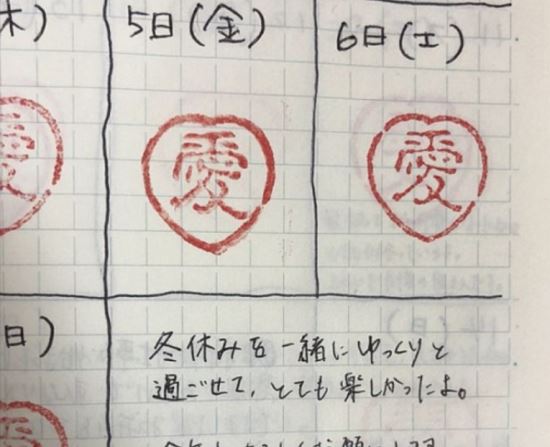 木)
5日(金)
6日(土)
愛
愛
愛
日)
冬休みを一緒にゆっくりと
過ごせて、とても楽しかったよ。